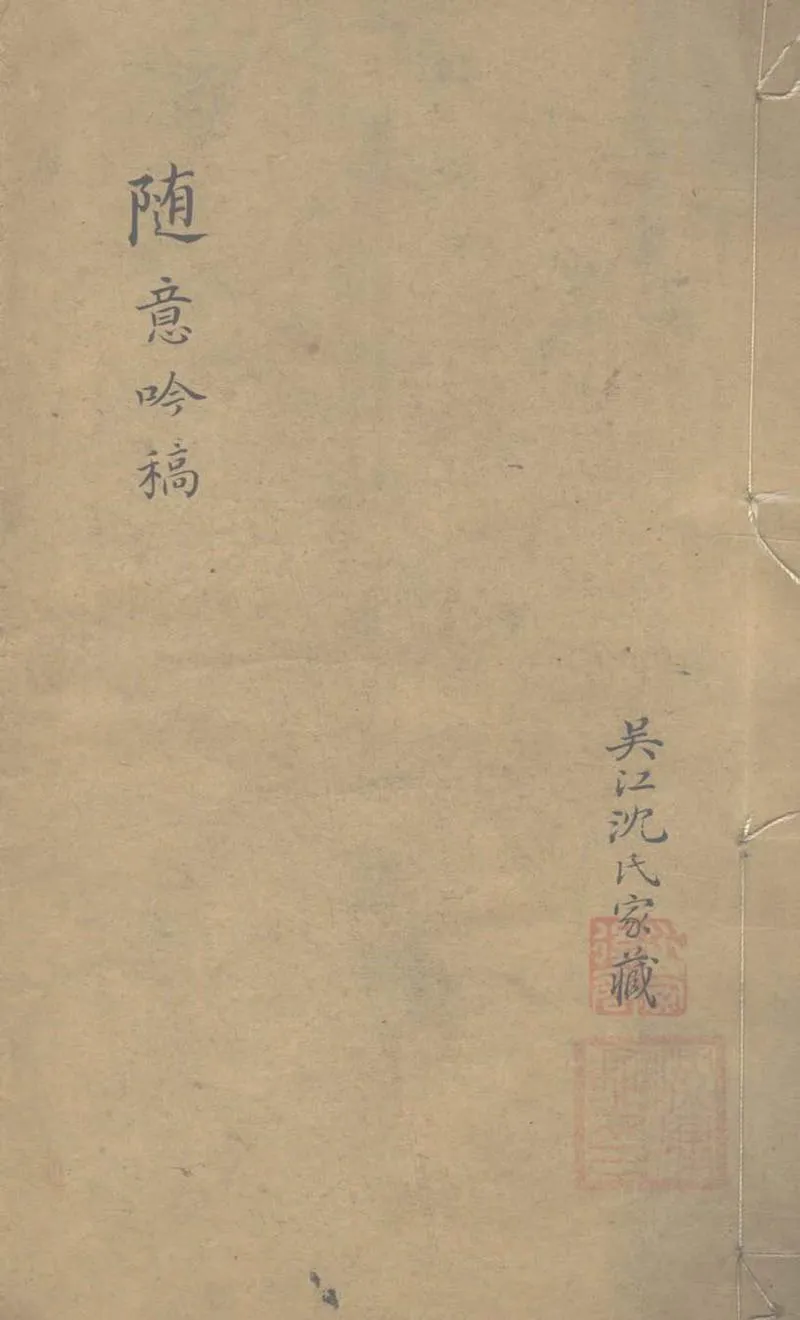 随意吟稿
吴江沈氏家藏